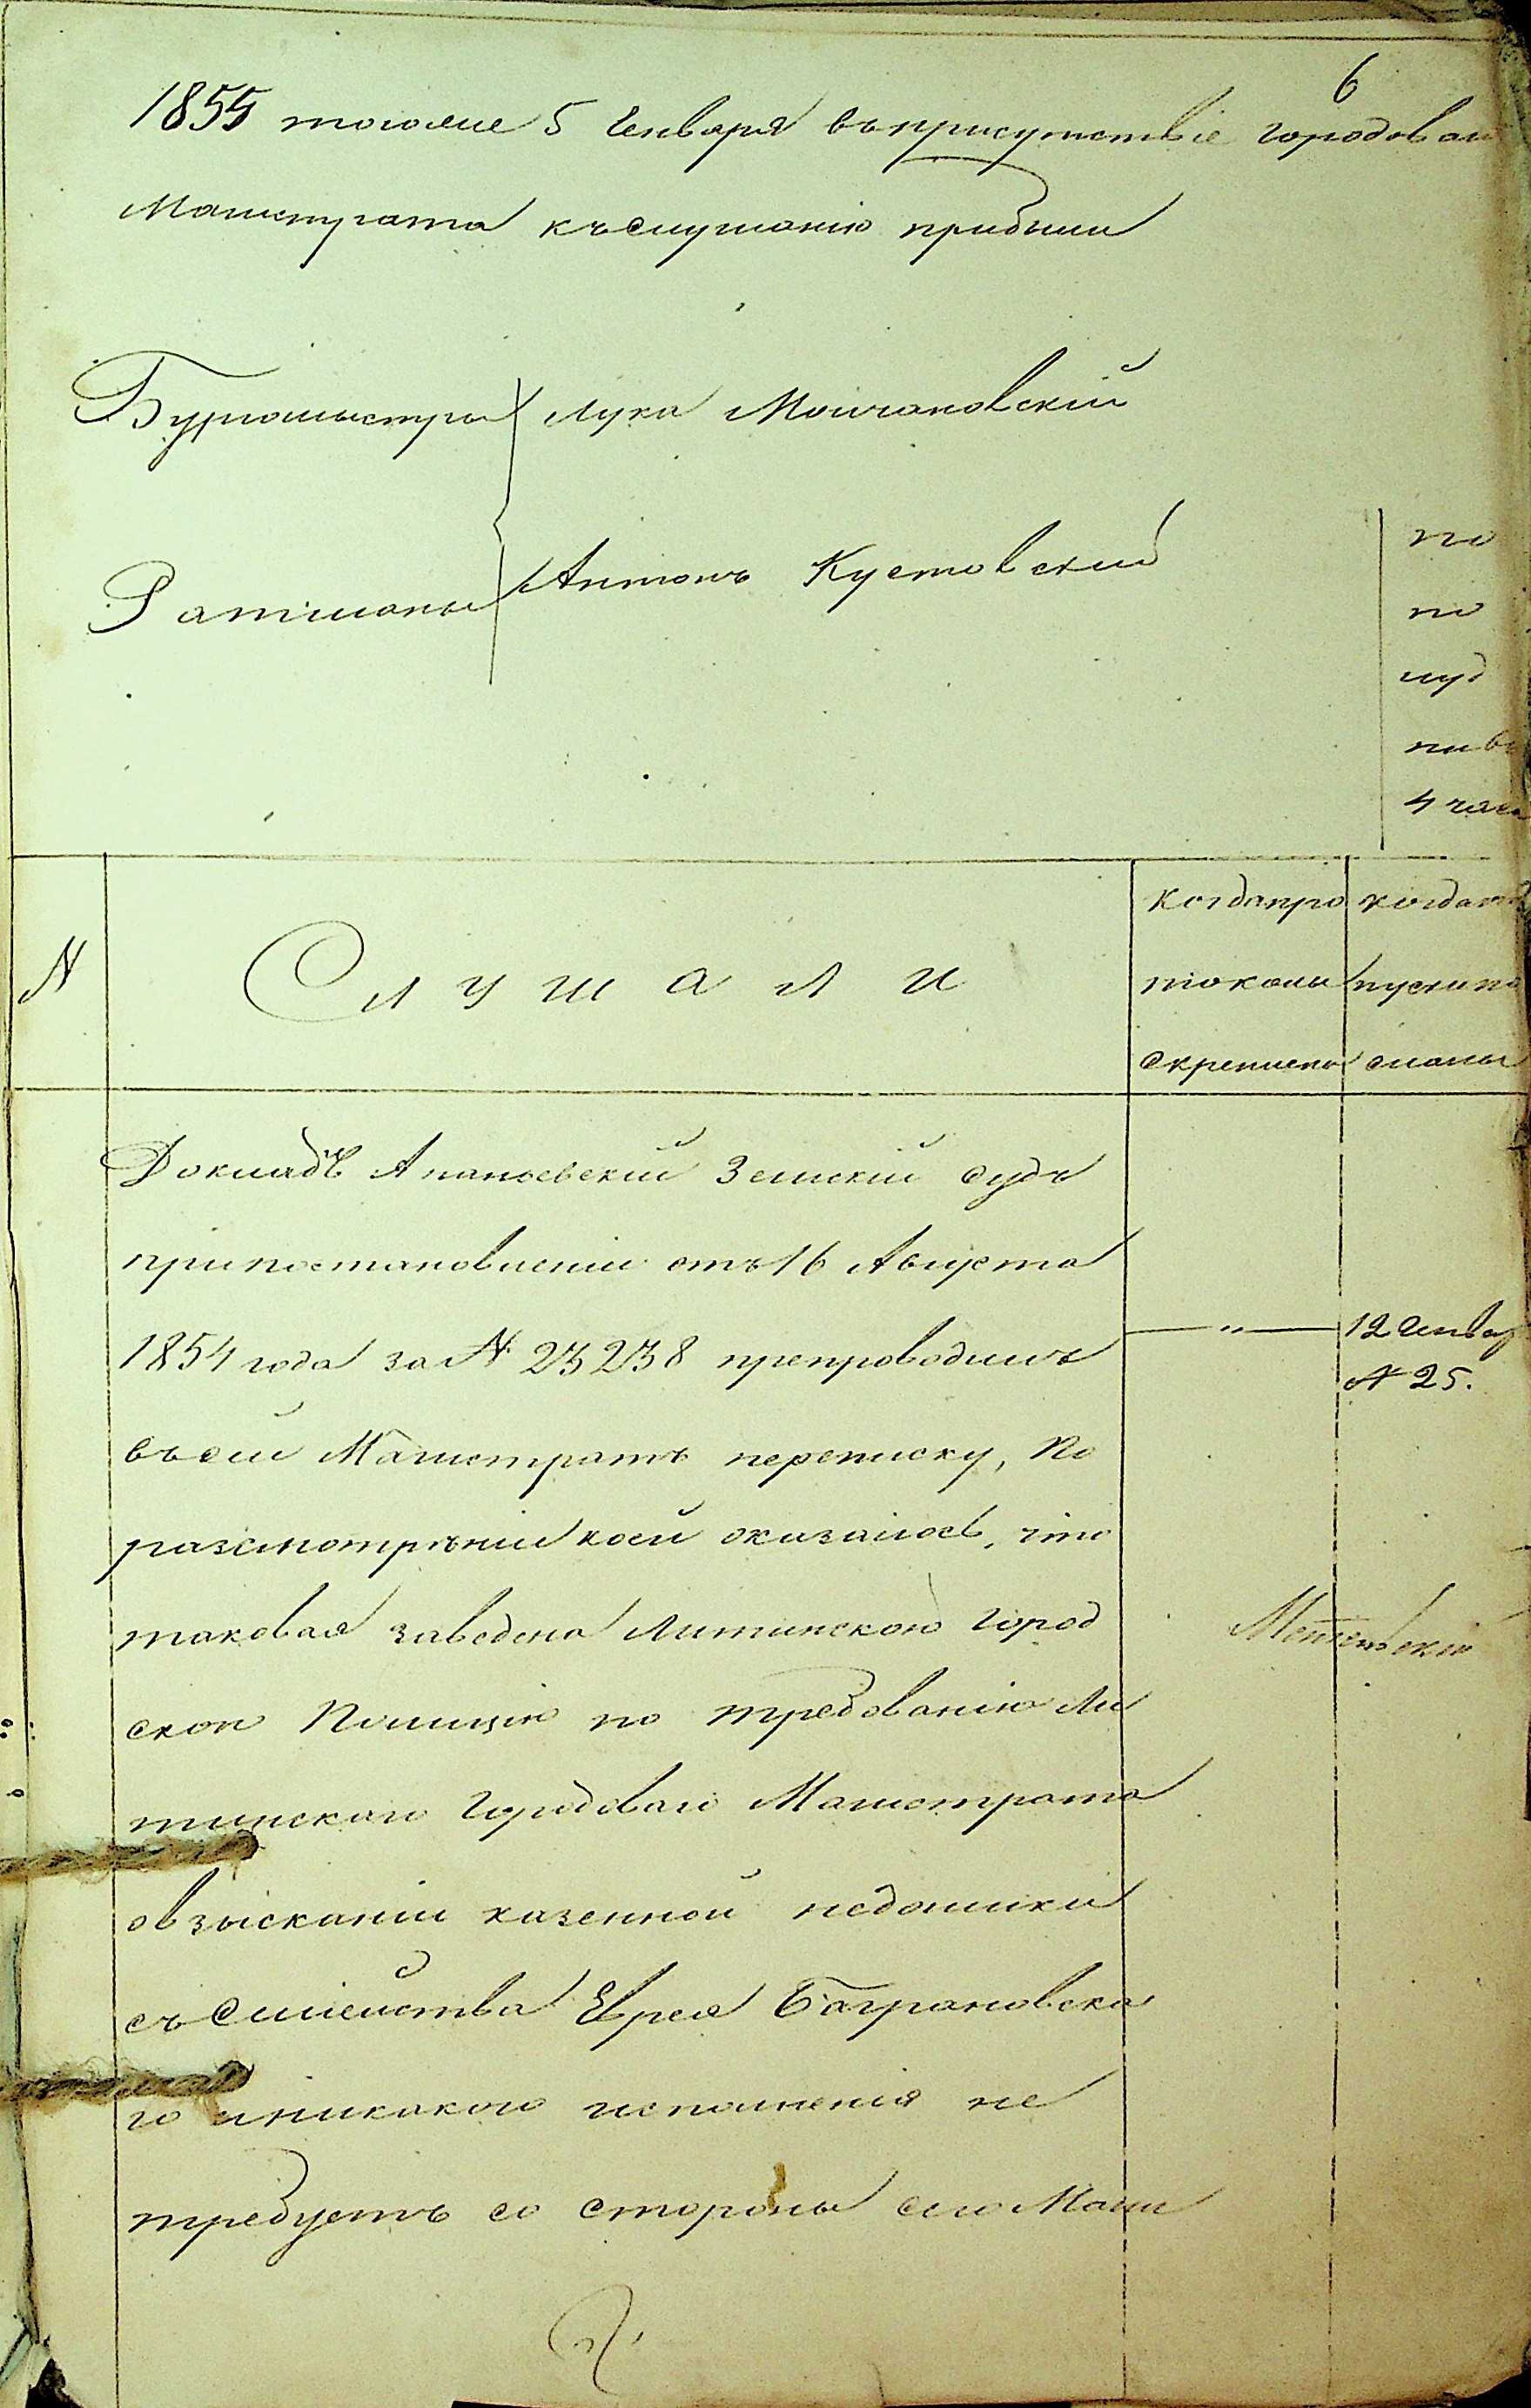 6
1855 тогоже 5 Генваря въприсутствіе городоваго
Магистрата къслушанію прибыли
Бургомыстры Лука Молчановскій
Ратманы Антонъ Кустовскій
по
по
луд
пив
4 часа
N
Слушали
когдапро
токолы
скреплено
когдаот
пуслипо
сланы
Докладъ Ананьевскій Земскій судъ
припостановленіи отъ 16 Августа
1854 года за N 23238 препроводилъ
въсей Магистратъ переписку, по
разсмотрѣніи коей оказалось, что
таковая заведена Литинскою Город
скою Полиціею по требованію Ли
тинскаго Городоваго Магистрата
овзысканіи казенной недоимки
съ Смиейства Еврея Баграновска
го иникакого исполненія не
требуетъ со стороны сего Маги
12 Генвар
N 25.